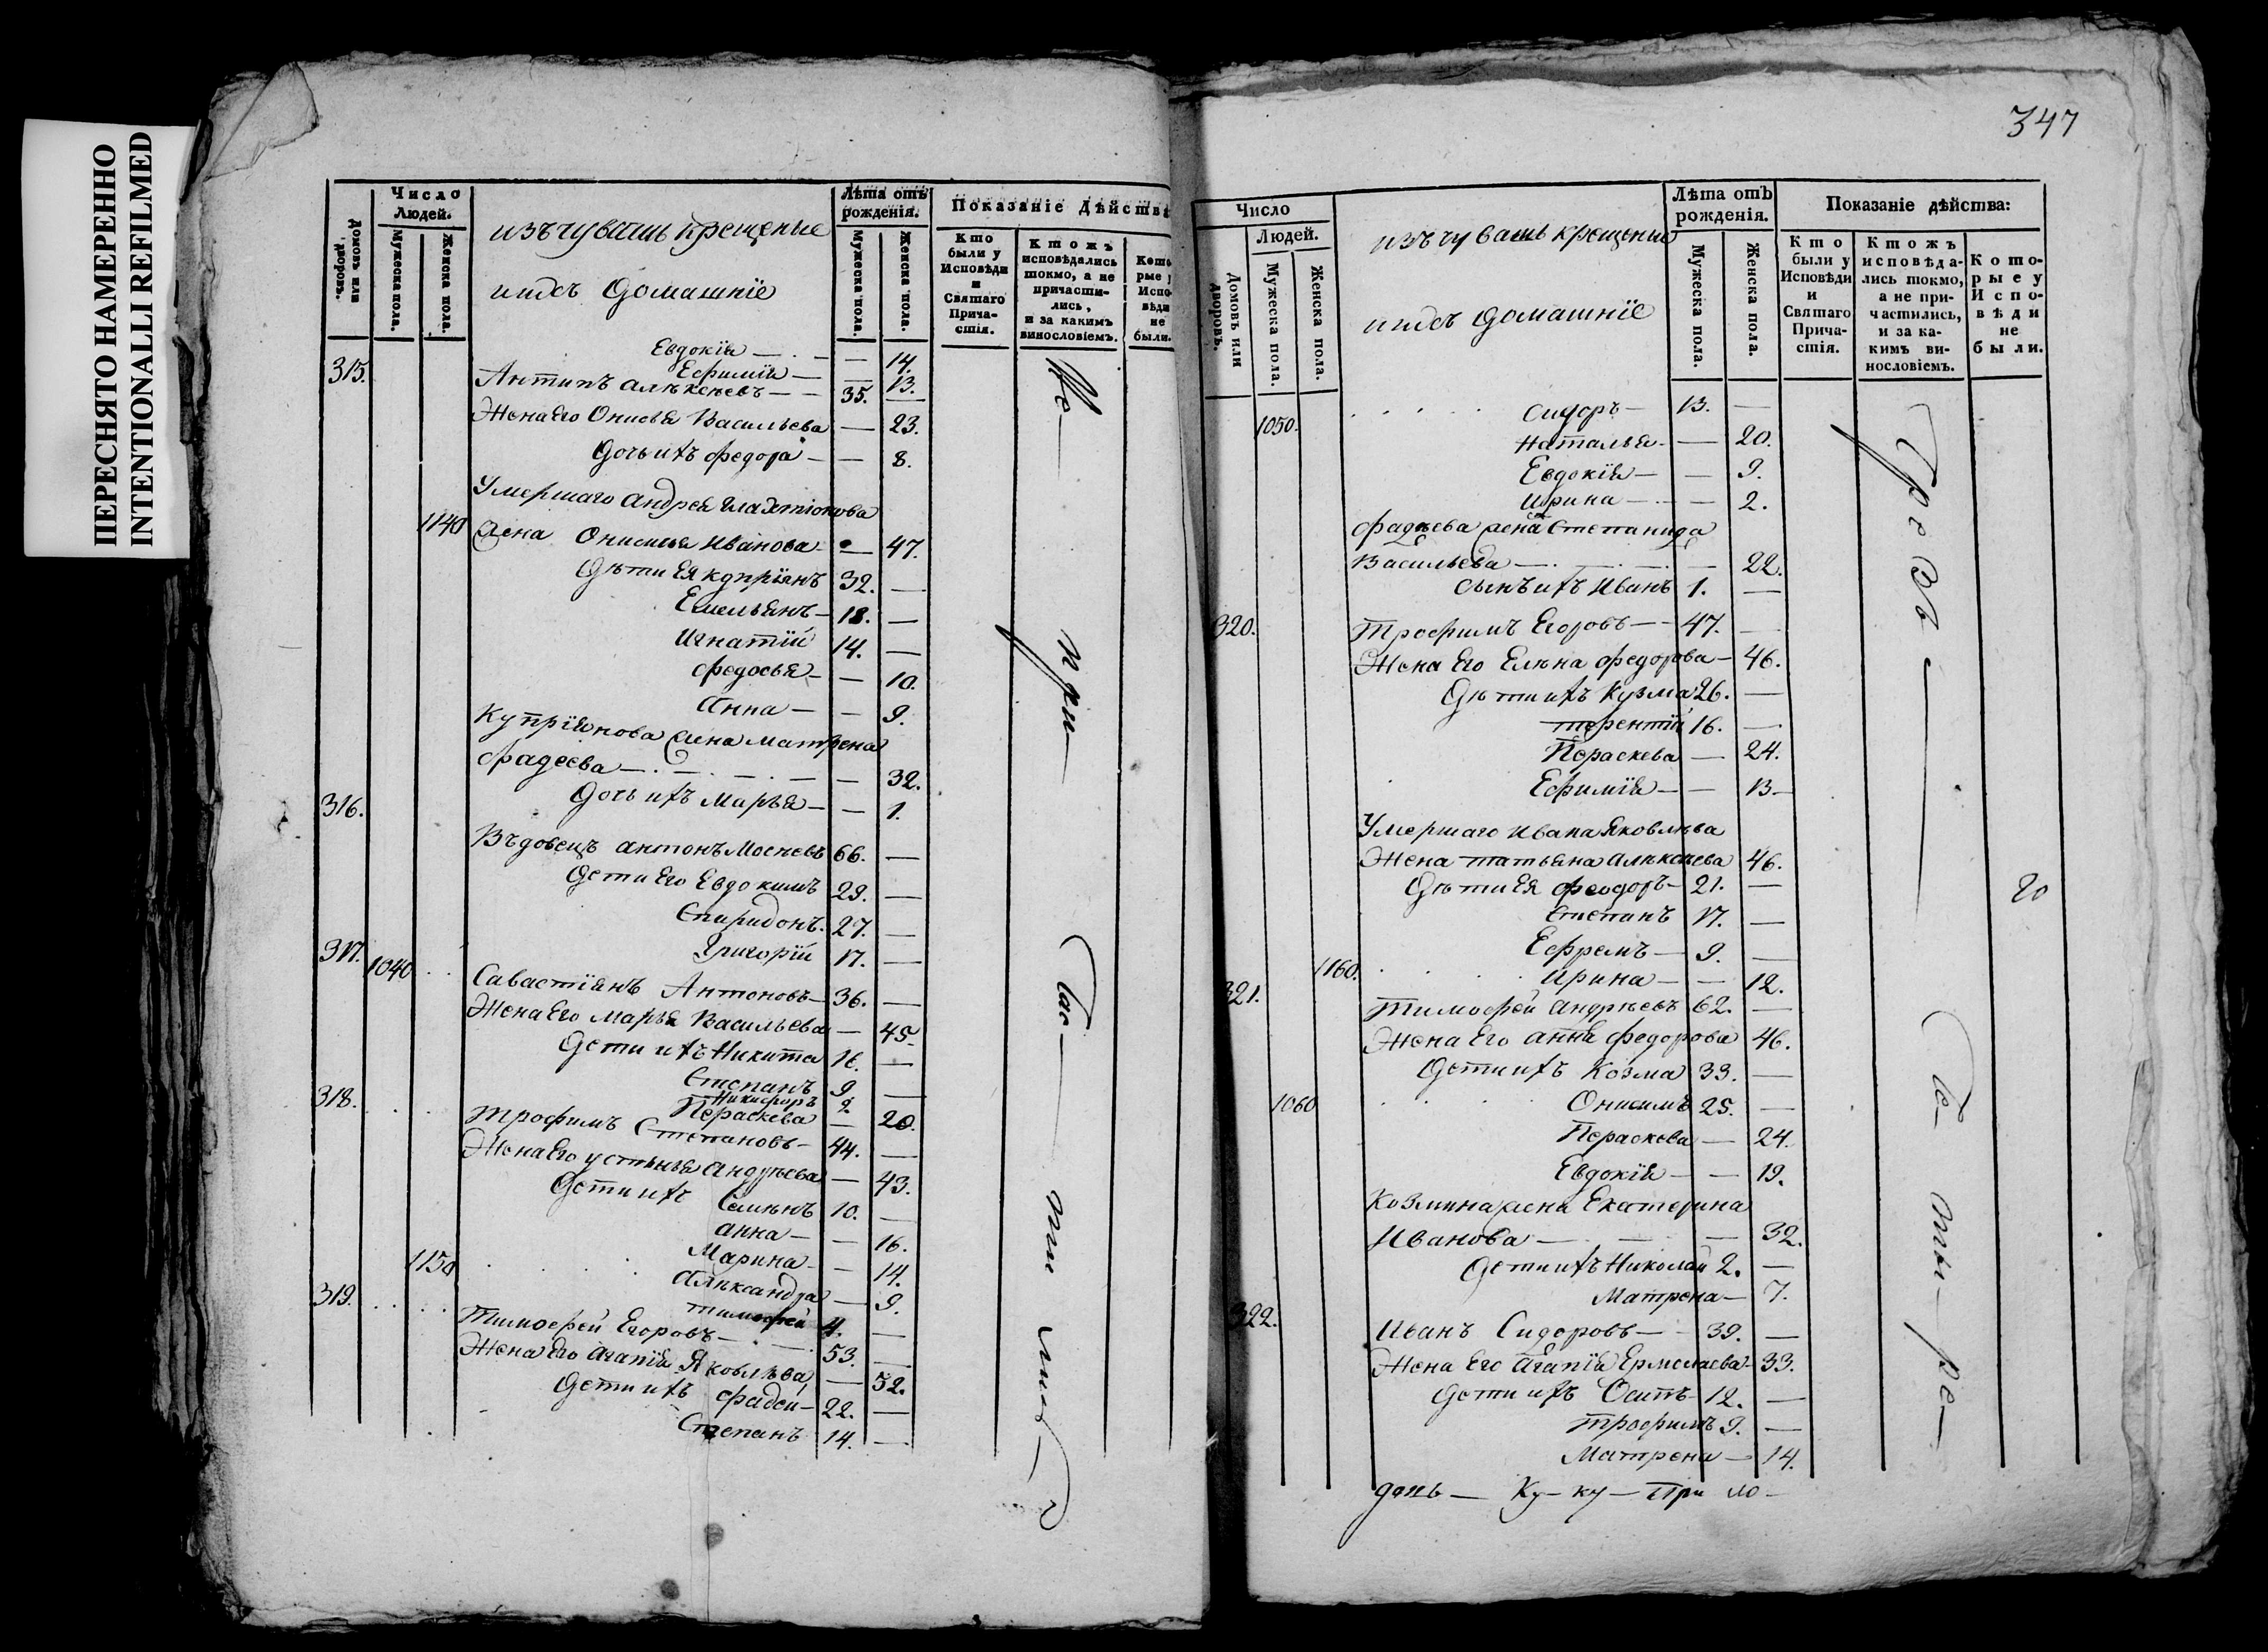 ПЕРЕСНЯТО НАМЕРЕННО
INTENTIONALLI REFILMED
Число
Людей.
Домовъ или дворовъ.
Мужеска пола.
Женска пола.
изъ чувашъ крещеные
и ихъ домашніе
Лѣта отъ
рожденія.
Мужеска пола.
Женска пола.
Показаніе Дѣйства
Кто
были у
Исповѣди
и
Святаго
Прича-
стія.
Ктожъ
исповѣдались
токмо, а не
причасти-
лись,
и за какимъ
винословіемъ.
Кото
рые у
Испо-
вѣди
не
были.
Евдокія — — 14.
Ефимія — — 13.
315. Антипъ Алѣксѣевъ — 35. —
Жена его Онисья Васильева — 23.
Дочь ихъ Федора — — 8.
Умершаго Андрея Галахтіонова
1140 жена Онисья Иванова — 47.
Дѣти Ея Купріянъ 32. —
Емельянъ — 18. —
Игнатій 14. —
Федосья — — 10.
Анна — — 9.
Купріянова жена Матрена
Фадеева — — — 32.
Дочь ихъ Марья — — 1.
316.
Въдовецъ Антонъ Мосѣевъ 66. —
Дети Его Евдокимъ 29. —
Спиридонъ. 27. —
Григорій 17. —
317. 1040
Савастіянъ Антоновъ — 36. —
Жена Его Марья Васильева — 45.
Дети ихъ Никита 16. —
Степанъ 9 —
Никифоръ 2
Пераскева — 20.
318. Трофимъ Степановъ — 44. —
Жена Его Устинья Андрѣева — 43.
Дети ихъ Семѣнъ 10. —
Анна — — 16.
Марина — — 14.
1150 Алѣксандра — 9.
Тимофей 4. —
319. Тимофей Егоровъ — 53. —
Жена Его Агапія Яковлѣва — 52.
Дети ихъ Фадей — 22. —
Степанъ 14. —
Во —
при —
час —
ти
лись
347
Число
Людей.
Домовъ или дворовъ.
Мужеска пола.
Женска пола.
изъ чувашъ крещеные
и ихъ домашніе
Лѣта отъ
рожденія.
Мужеска пола.
Женска пола.
Показаніе дѣйства:
Кто
были у
Исповѣди
и
Святаго
Прича-
стія.
Ктожъ
исповѣда-
лись токмо,
а не при-
частились,
и за ка-
кимъ ви-
нословіемъ.
Кото-
рые у
Испо-
вѣди
не
были.
1050. Сидоръ — 13. —
Наталья — — 20.
Евдокія — — 9.
Ирина — — 2.
Фадѣева жена Степанида
Васильева — — 22.
Сынъ ихъ Иванъ 1. —
320. Трофимъ Егоровъ — 47. —
Жена Его Елѣна Федорова — 46.
Дѣти ихъ Кузма 26. —
Терентій 16. —
Пераскева — 24.
Ефимія — — 13 —
Умершаго Ивана Яковлѣва
Жена Татьяна Алѣксѣева 46.
Дѣти Ея Феодоръ — 21. —
Степанъ 17. —
Ефремъ — 9. —
1160. Ирина — — 12.
321. Тимофей Андрѣевъ 62. —
Жена Его Анна Федорова 46.
Дети ихъ Козма 33. —
1060 Онисимъ 25. —
Пераскева — 24.
Евдокія — — 19.
Козмина жена Екатерина
Иванова — — — 32.
Дети ихъ Николай 2. —
Матрена — 7.
322. Иванъ Сидоровъ — 39. —
Жена Его Агапія Ермолаева — 33.
Дети ихъ Осипъ — 12. —
Трофимъ 9. —
Матрена — 14.
20
день — Ку — ку — При ло —